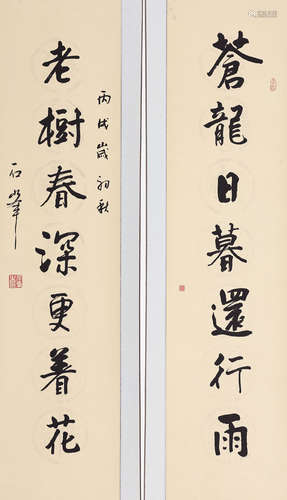 蒼龍日暮還行雨
老樹春深更着花
丙戌歲初秋